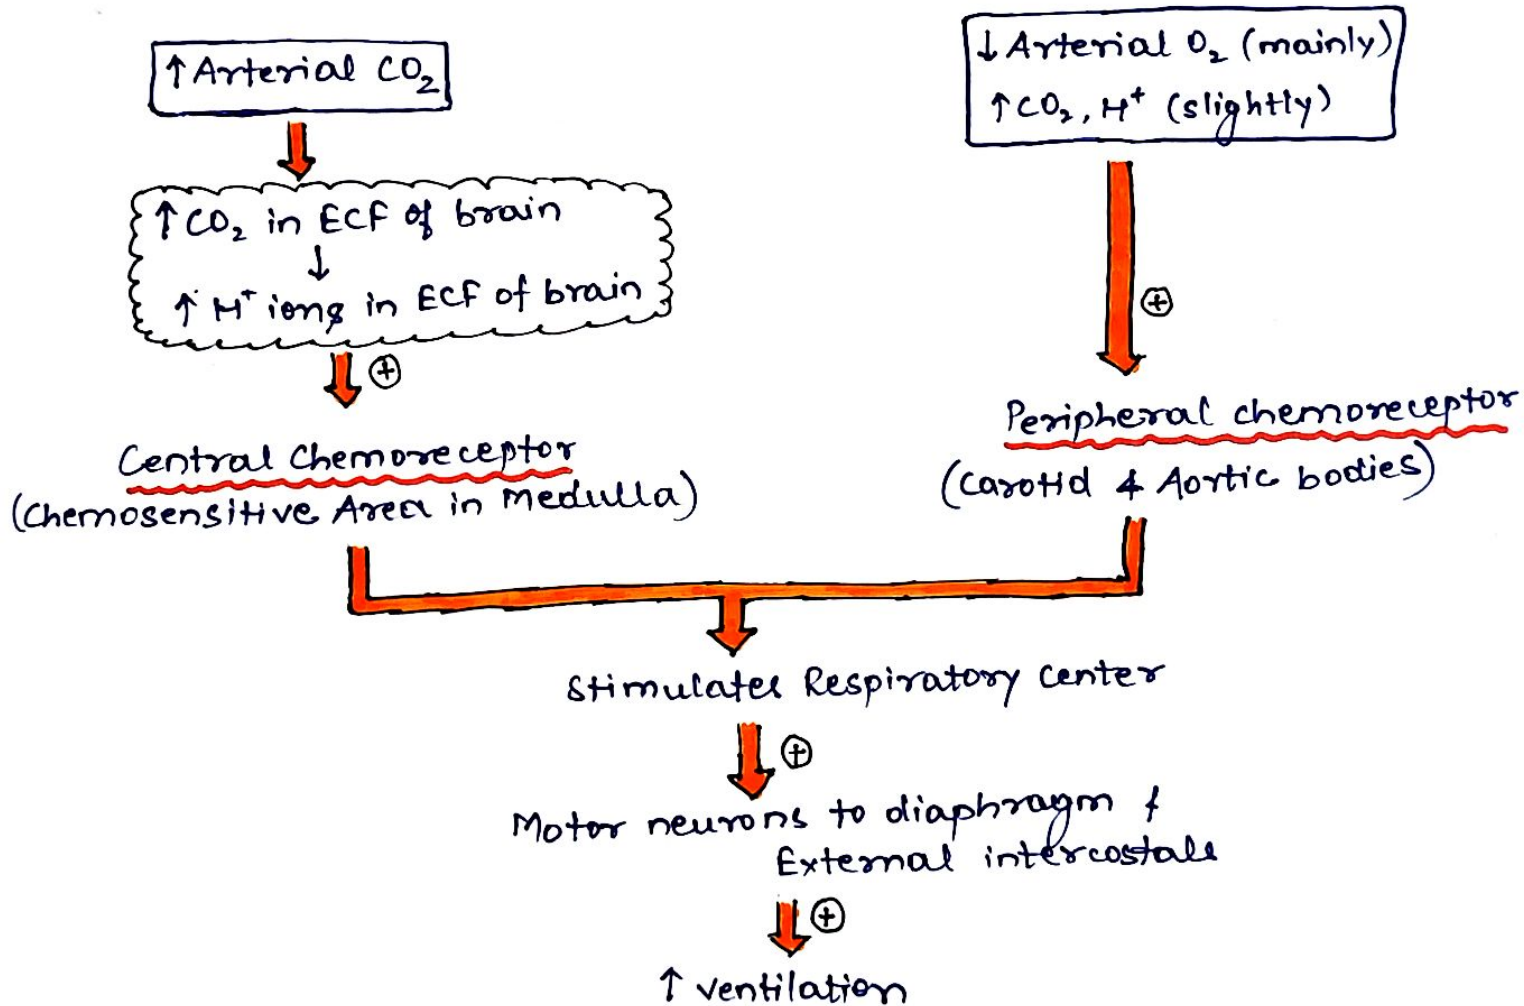 ↑ Arterial CO₂
↑ CO₂ in ECF of brain
↓
↑ H⁺ ions in ECF of brain
⊕
Central Chemoreceptor
(Chemosensitive Area in Medulla)
↓ Arterial O₂ (mainly)
↑ CO₂, H⁺ (slightly)
⊕
Peripheral chemoreceptor
(Carotid & Aortic bodies)
Stimulates Respiratory center
⊕
Motor neurons to diaphragm &
External intercostals
⊕
↑ ventilation